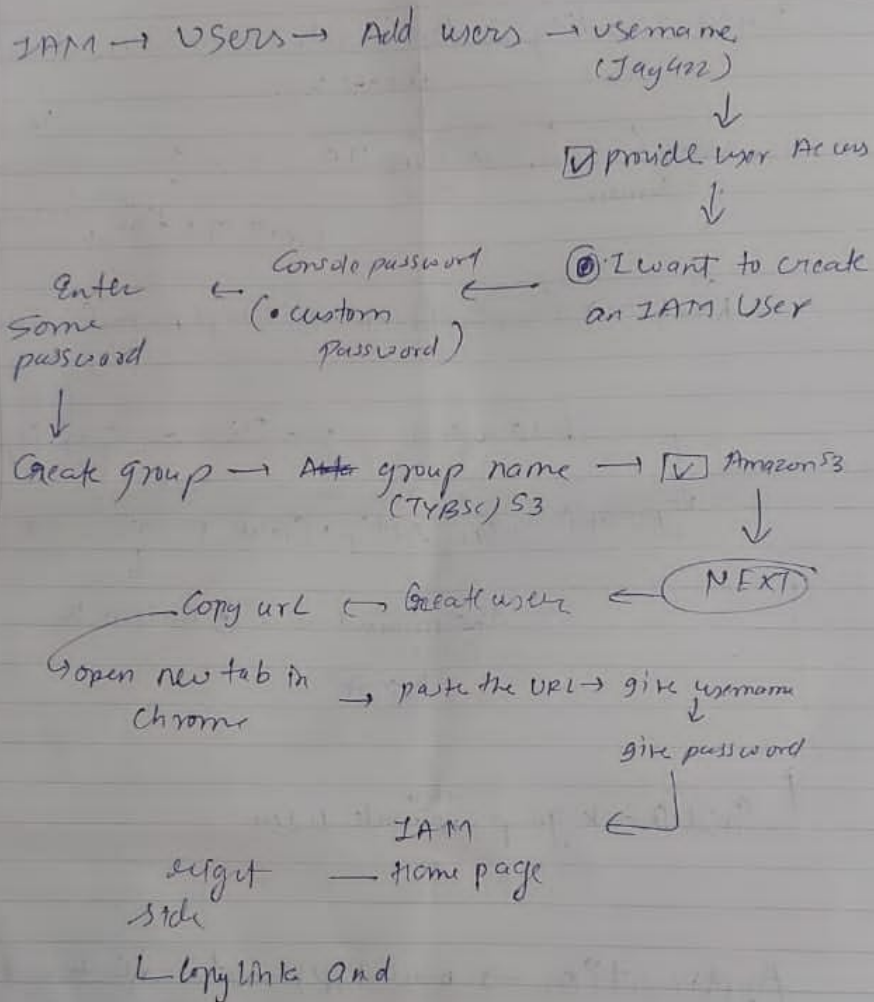 IAM → Users → Add users → username
(Jay422)
↓
☑ provide user Access
↓
◉ I want to create
an IAM User
←
Console password
(• custom
password)
←
Enter
some
password
↓
Create group → group name → ☑ AmazonS3
(TYBSC) S3
↓
NEXT
← Create user ← Copy url
↳ open new tab in
Chrome
→ paste the URL → give username
↓
give password
IAM ←
Home page
— right
side
└ Copy link and